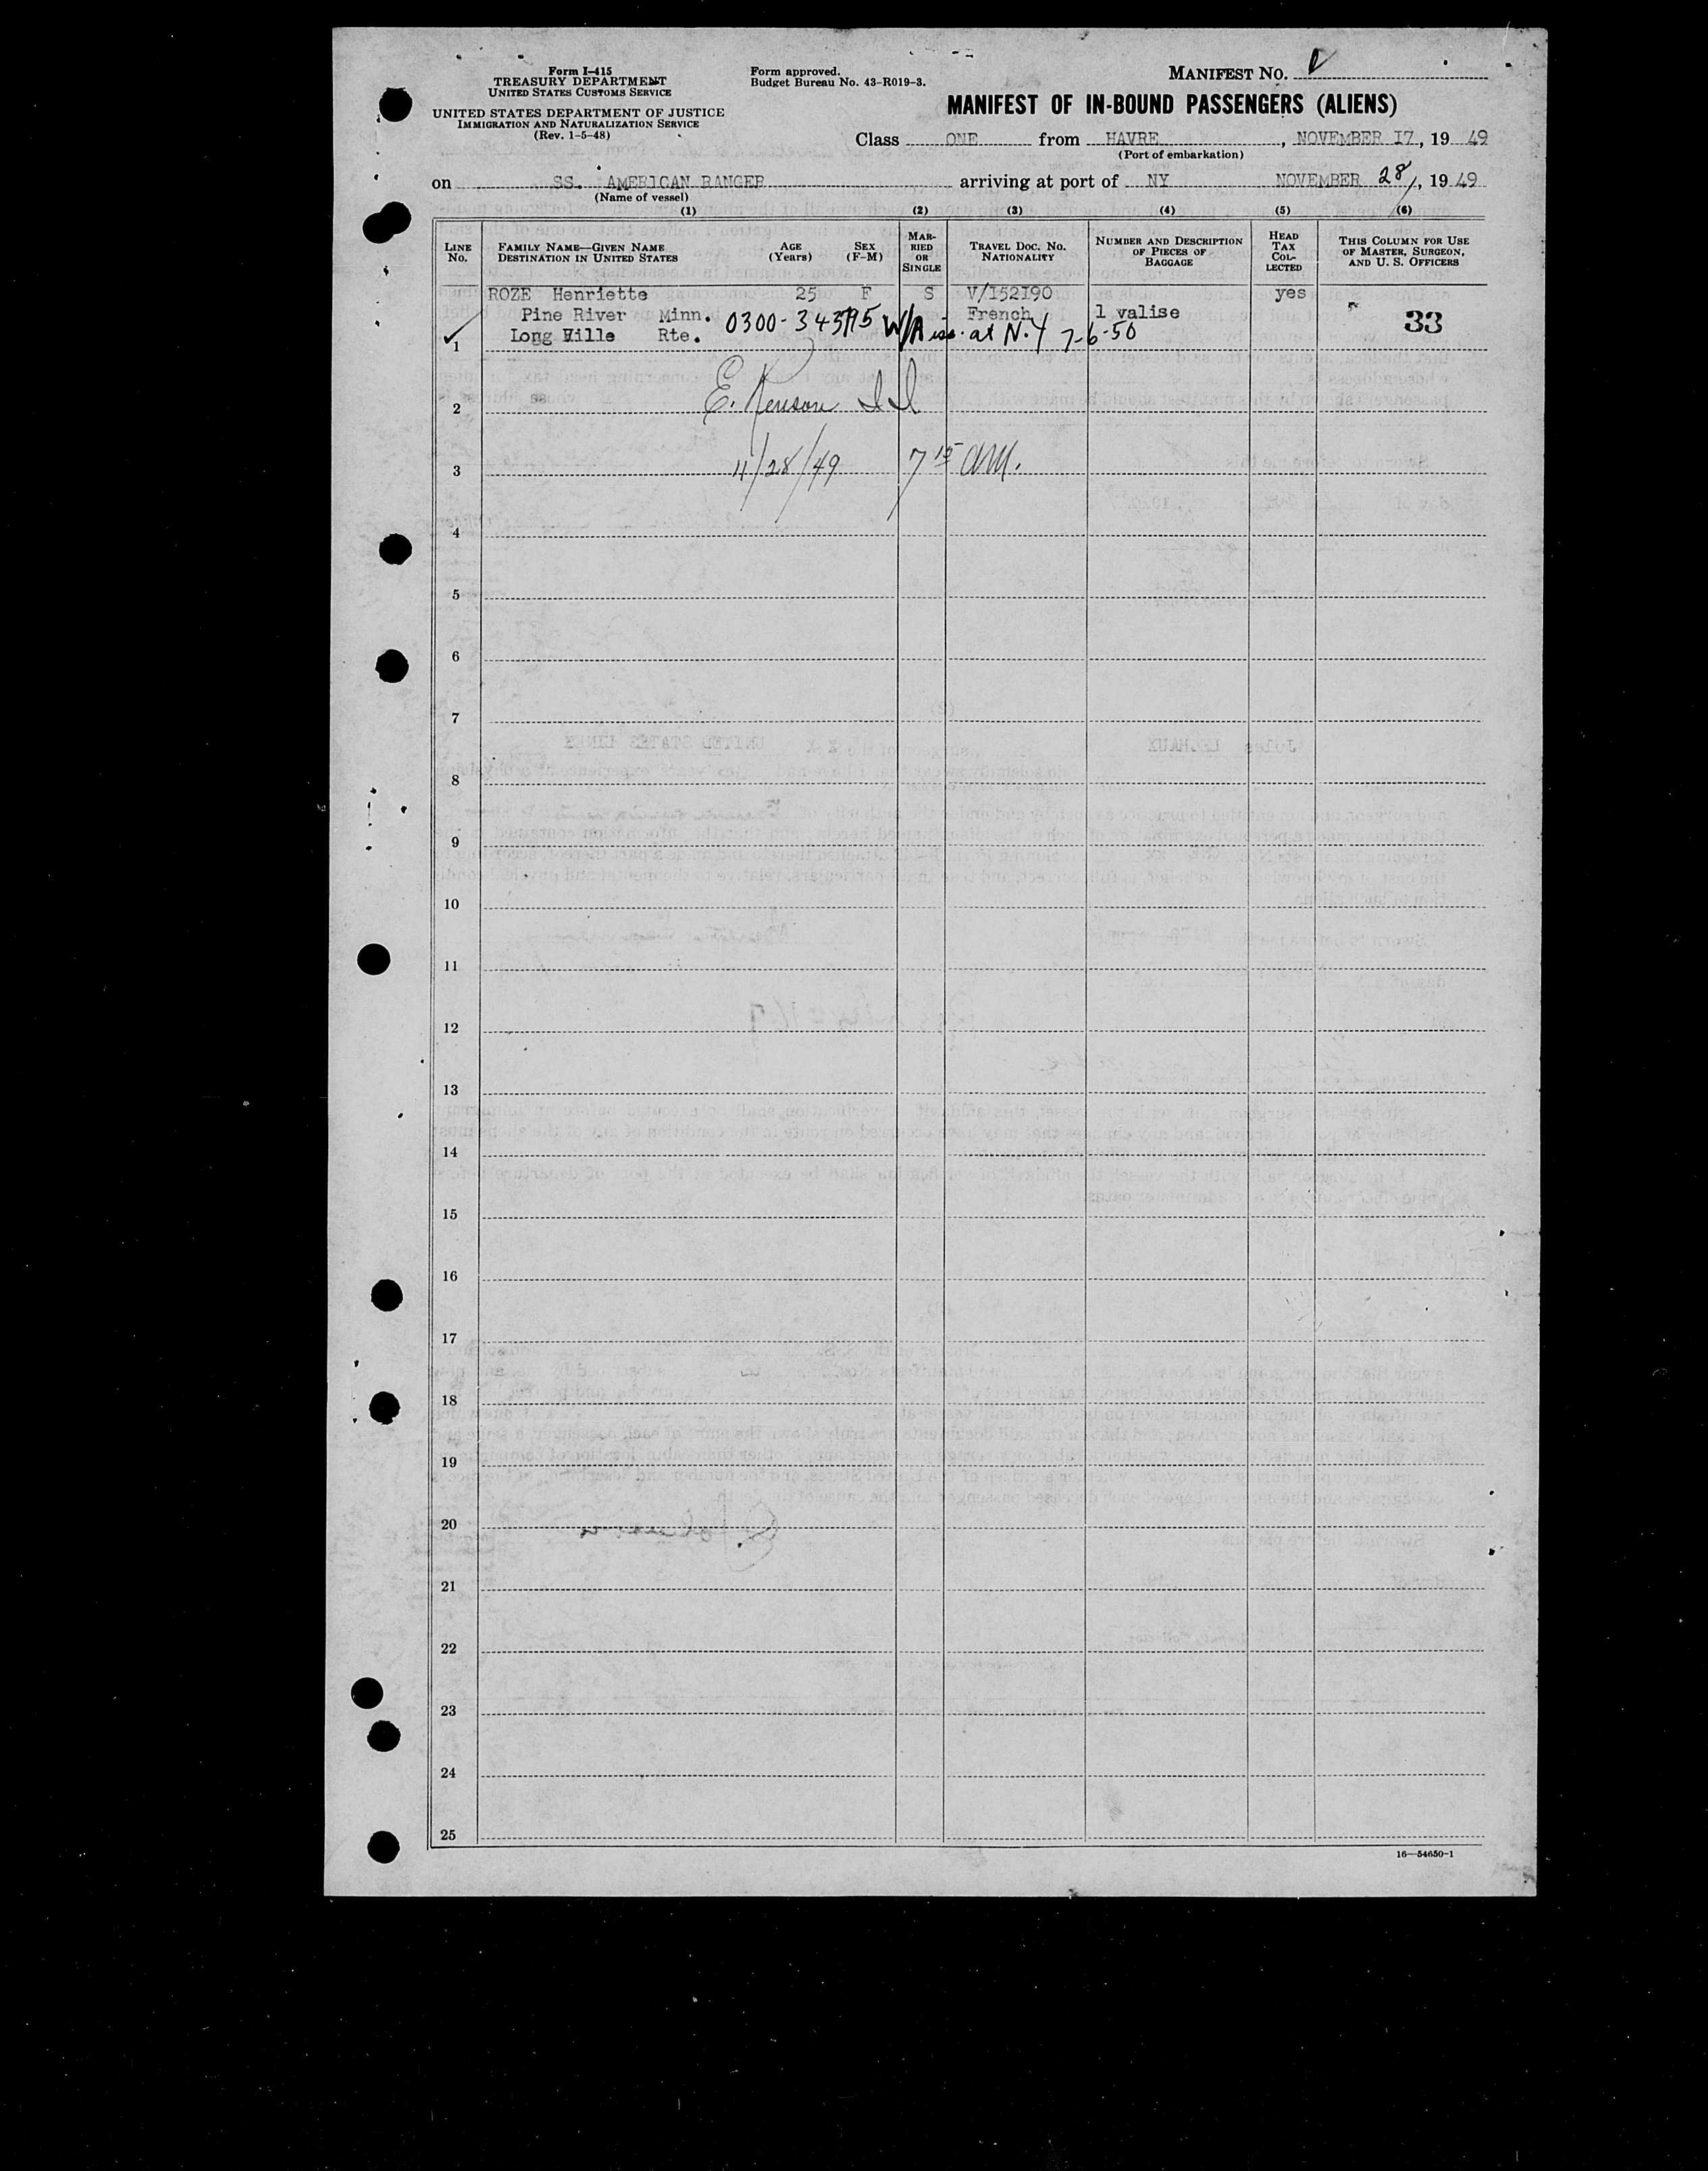 Form I-415
TREASURY DEPARTMENT
UNITED STATES CUSTOMS SERVICE
UNITED STATES DEPARTMENT OF JUSTICE
IMMIGRATION AND NATURALIZATION SERVICE
(Rev. 1-5-48)
Form approved.
Budget Bureau No. 43-R019-3.
MANIFEST NO.
MANIFEST OF IN-BOUND PASSENGERS (ALIENS)
Class ONE from HAVRE, NOVEMBER 17, 19 49
(Port of embarkation)
on SS. AMERICAN RANGER arriving at port of NY NOVEMBER 28, 19 49
(Name of vessel)
(1) (2) (3) (4) (5) (6)
LINE No.
FAMILY NAME—GIVEN NAME
DESTINATION IN UNITED STATES
AGE (Years)
SEX (F-M)
MARRIED OR SINGLE
TRAVEL DOC. NO. NATIONALITY
NUMBER AND DESCRIPTION OF PIECES OF BAGGAGE
HEAD TAX COLLECTED
THIS COLUMN FOR USE OF MASTER, SURGEON, AND U. S. OFFICERS
ROZE Henriette 25 F S V/I52I90 yes
Pine River Minn. French 1 valise 33
Long Ville Rte. 0300-343 at N.Y 7-6-50
1
E. II
2
11/28/49 7 15 AM.
3
4
5
6
7
8
9
10
11
12
13
14
15
16
17
18
19
20
21
22
23
24
25
16—54650-1